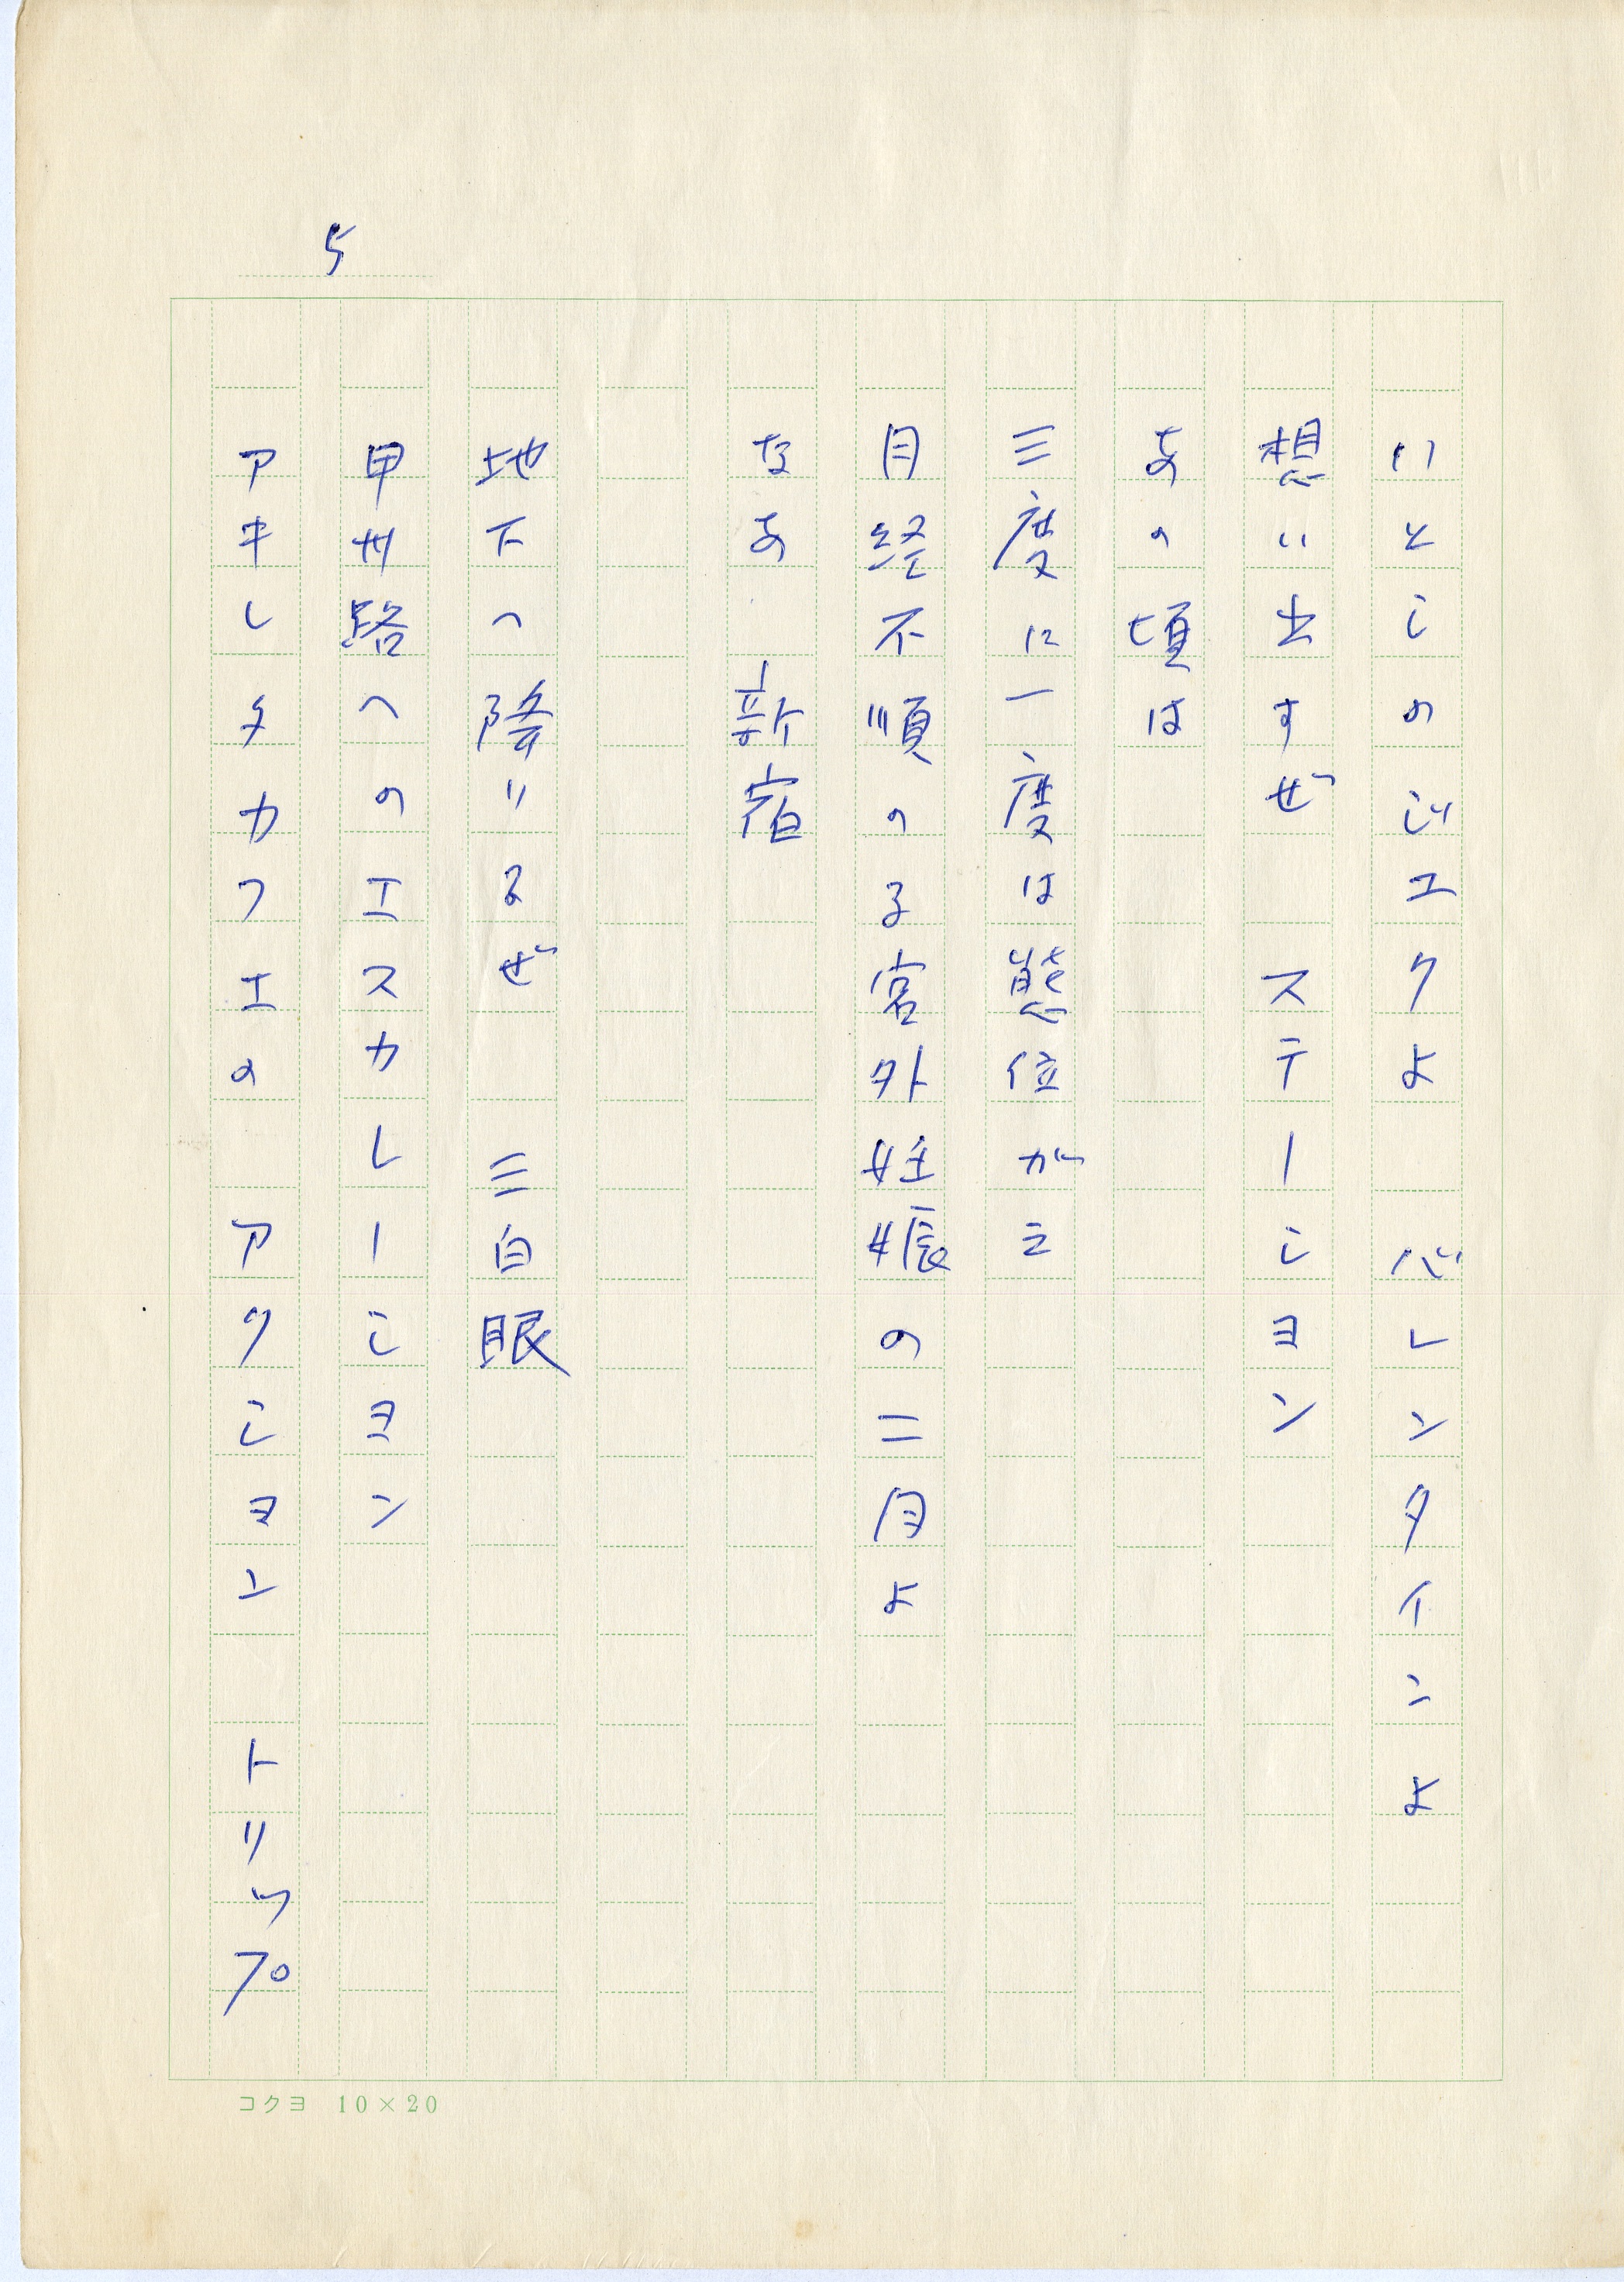 5
いとしのジエクよ　バレンタインよ
想い出すぜ　ステーション
あの頃は
三度に一度は態位が云
月経不順の子宮外妊娠の二月よ
なあ　新宿
地下へ降りるぜ　三白眼
甲州路へのエスカレーション
アキレタカフエの　アクション　トリップ
コクヨ 10×20